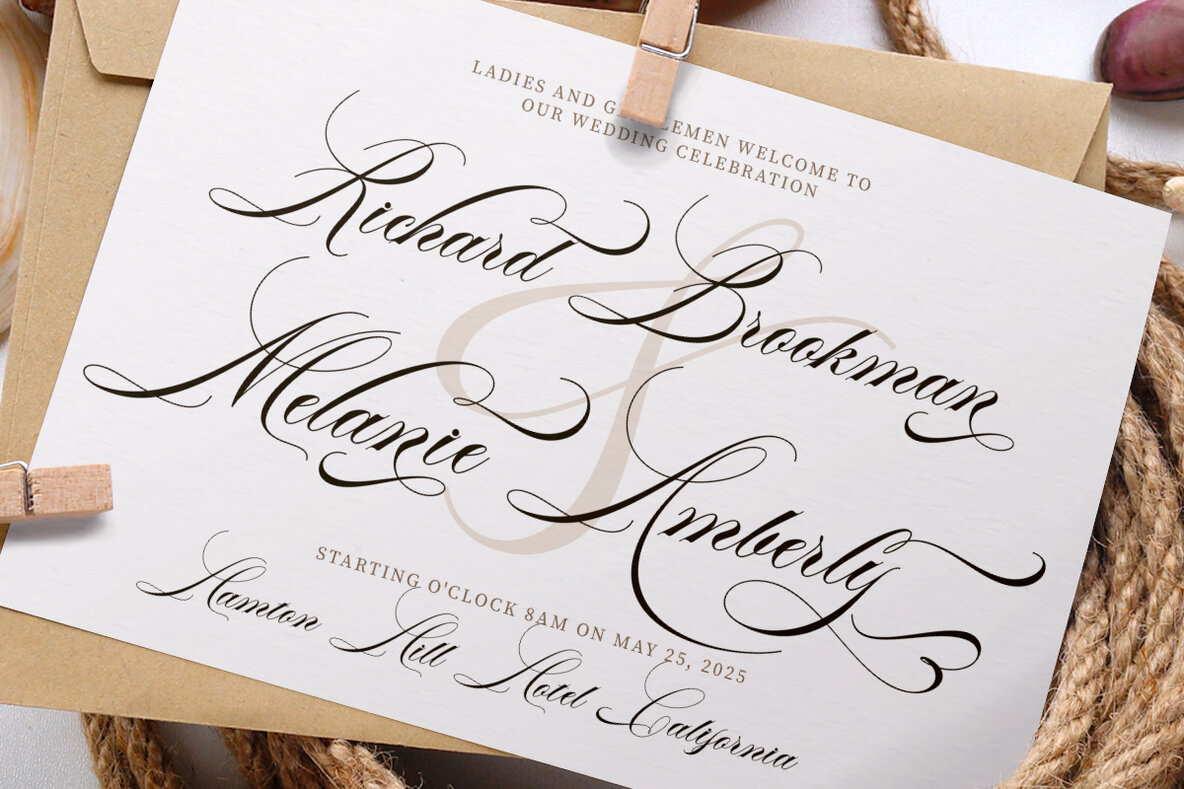 LADIES AND GENTLEMEN WELCOME TO
OUR WEDDING CELEBRATION
Richard Brookman
&
Melanie Amberly
STARTING O'CLOCK 8AM ON MAY 25, 2025
Hamton Hill Hotel California